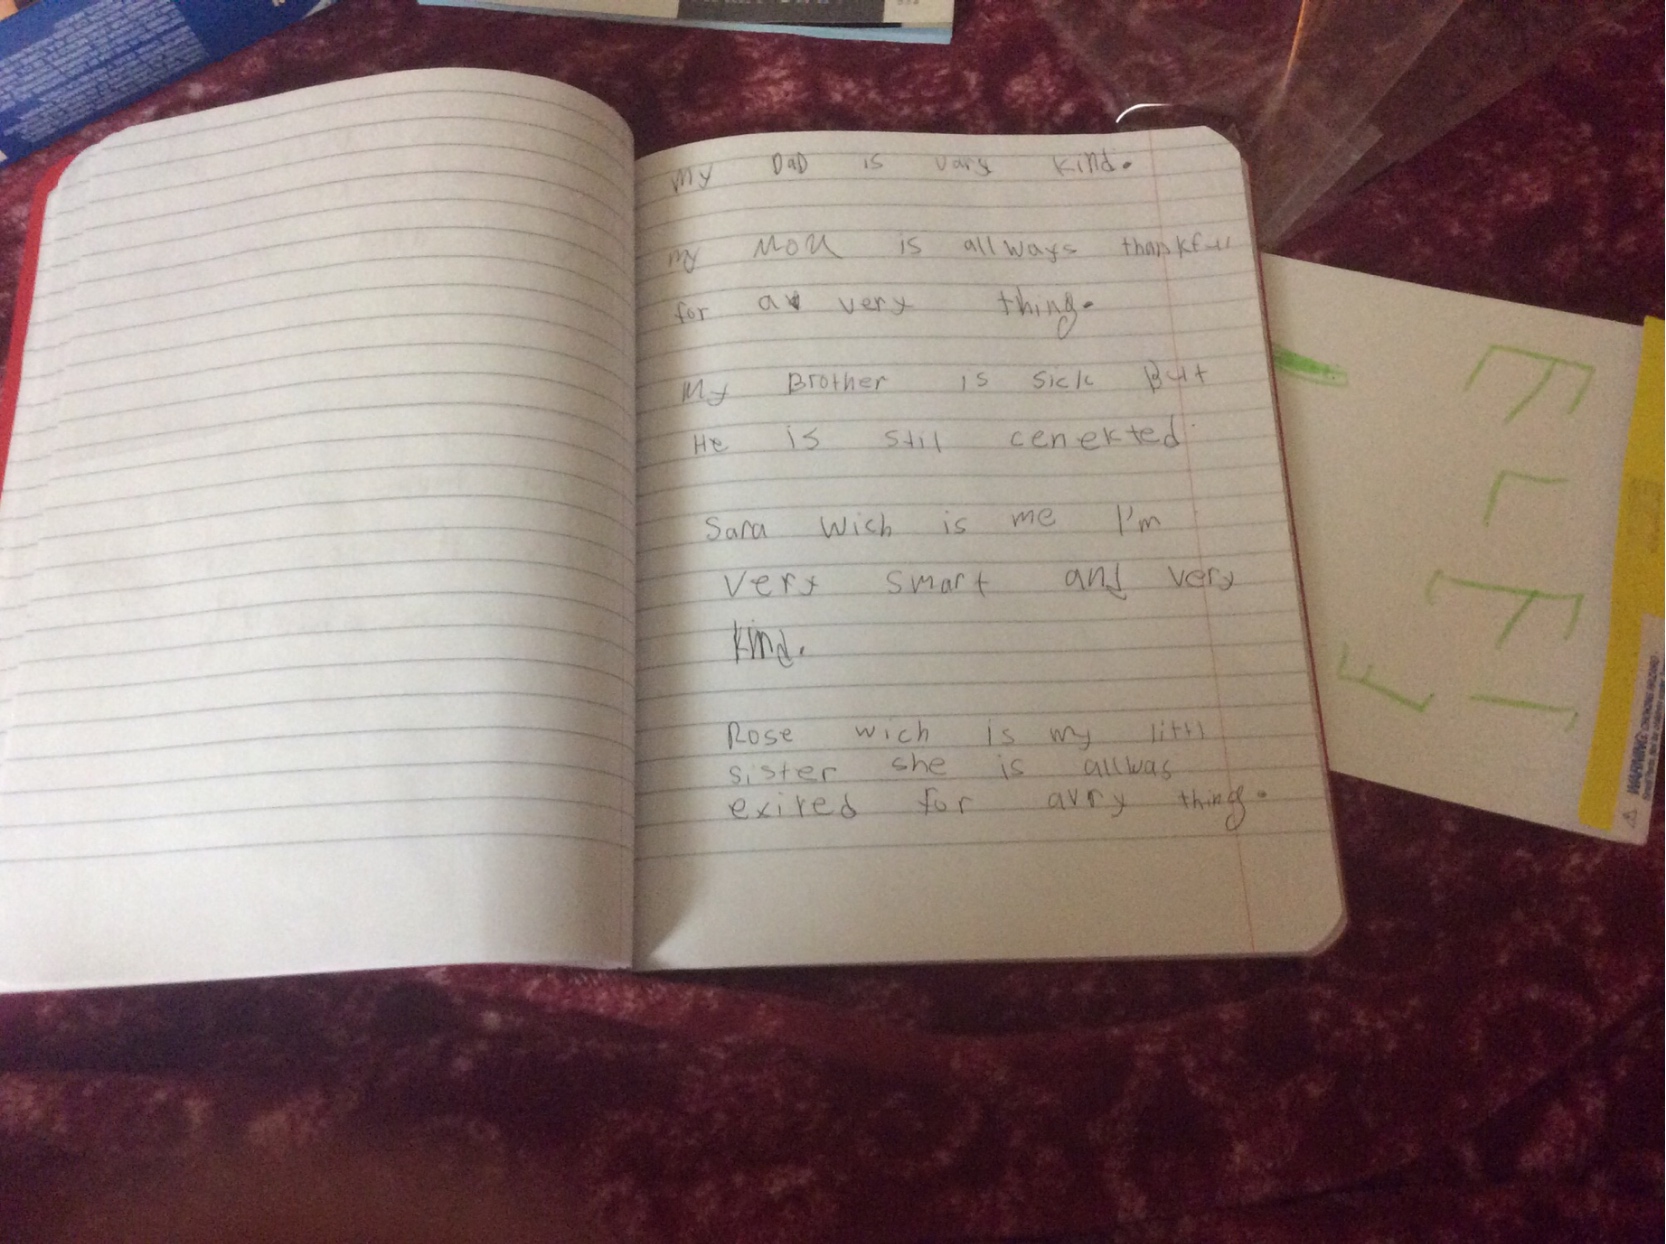 My DaD is vary kind.
my Mom is allways thankfull
for av very thing.
My Brother is sick But
He is stil cenekted
Sara wich is me I'm
very smart and very
kind.
Rose wich is my littl
sister she is allwas
exited for avry thing.
WARNING: